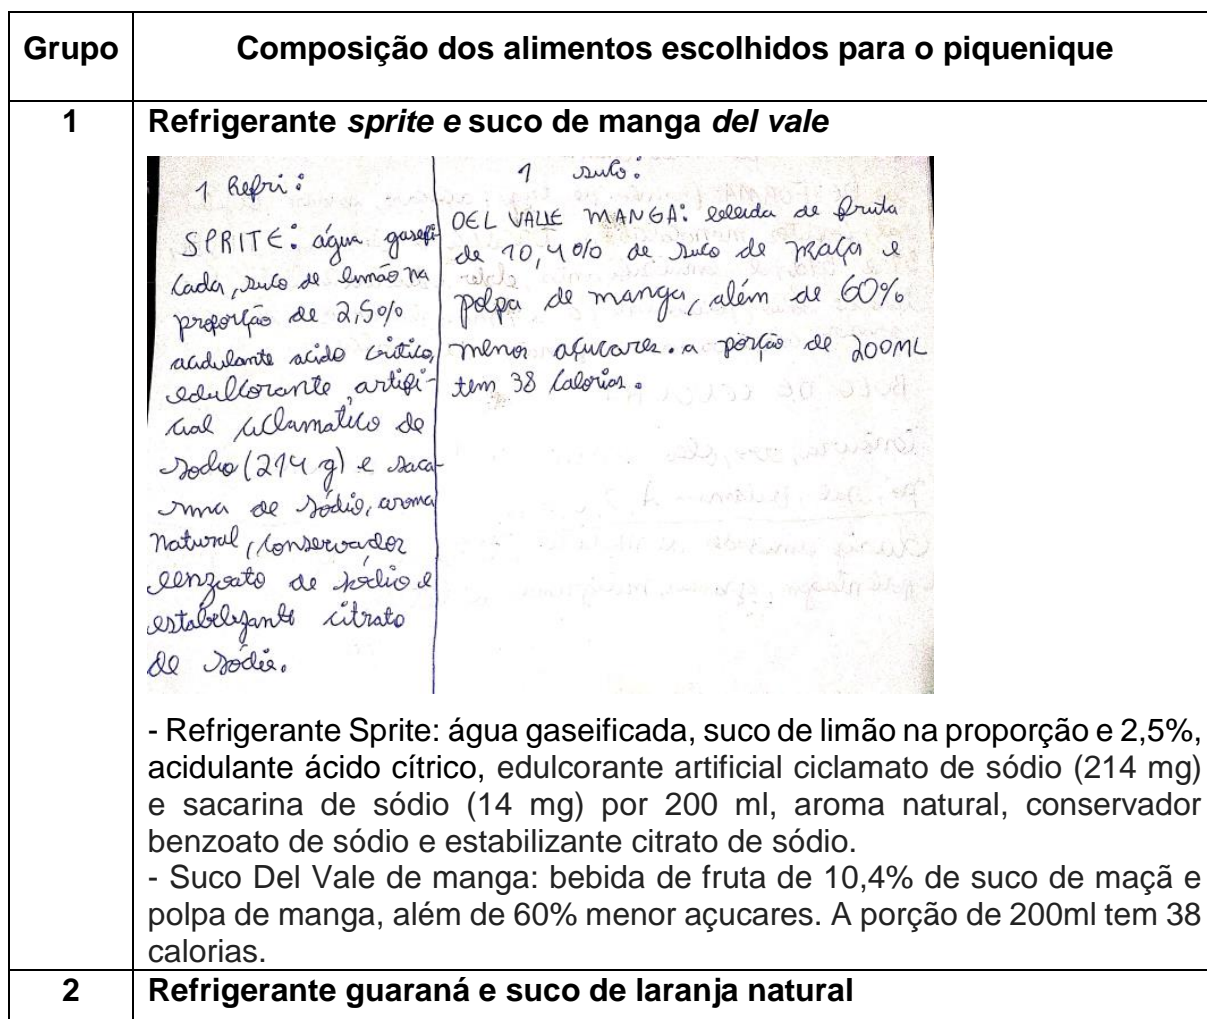 Grupo
Composição dos alimentos escolhidos para o piquenique
1
Refrigerante sprite e suco de manga del vale
1 Refri:
SPRITE: água gasefi-
cada, suco de limão na
proporção de 2,5%
acidulante acido critico,
edulcorante artifi-
cial ciclamatico de
sodio (214 g) e saca-
rina de sódio, aroma
natural, conservador
benzoato de sódio e
estabelizante citrato
de sódio.
1 suco:
DEL VALLE MANGA: bebida de fruta
de 10,4% de suco de maça e
polpa de manga, além de 60%
menor açucares. a porção de 200ML
tem 38 calorias.
- Refrigerante Sprite: água gaseificada, suco de limão na proporção e 2,5%,
acidulante ácido cítrico, edulcorante artificial ciclamato de sódio (214 mg)
e sacarina de sódio (14 mg) por 200 ml, aroma natural, conservador
benzoato de sódio e estabilizante citrato de sódio.
- Suco Del Vale de manga: bebida de fruta de 10,4% de suco de maçã e
polpa de manga, além de 60% menor açucares. A porção de 200ml tem 38
calorias.
2
Refrigerante guaraná e suco de laranja natural